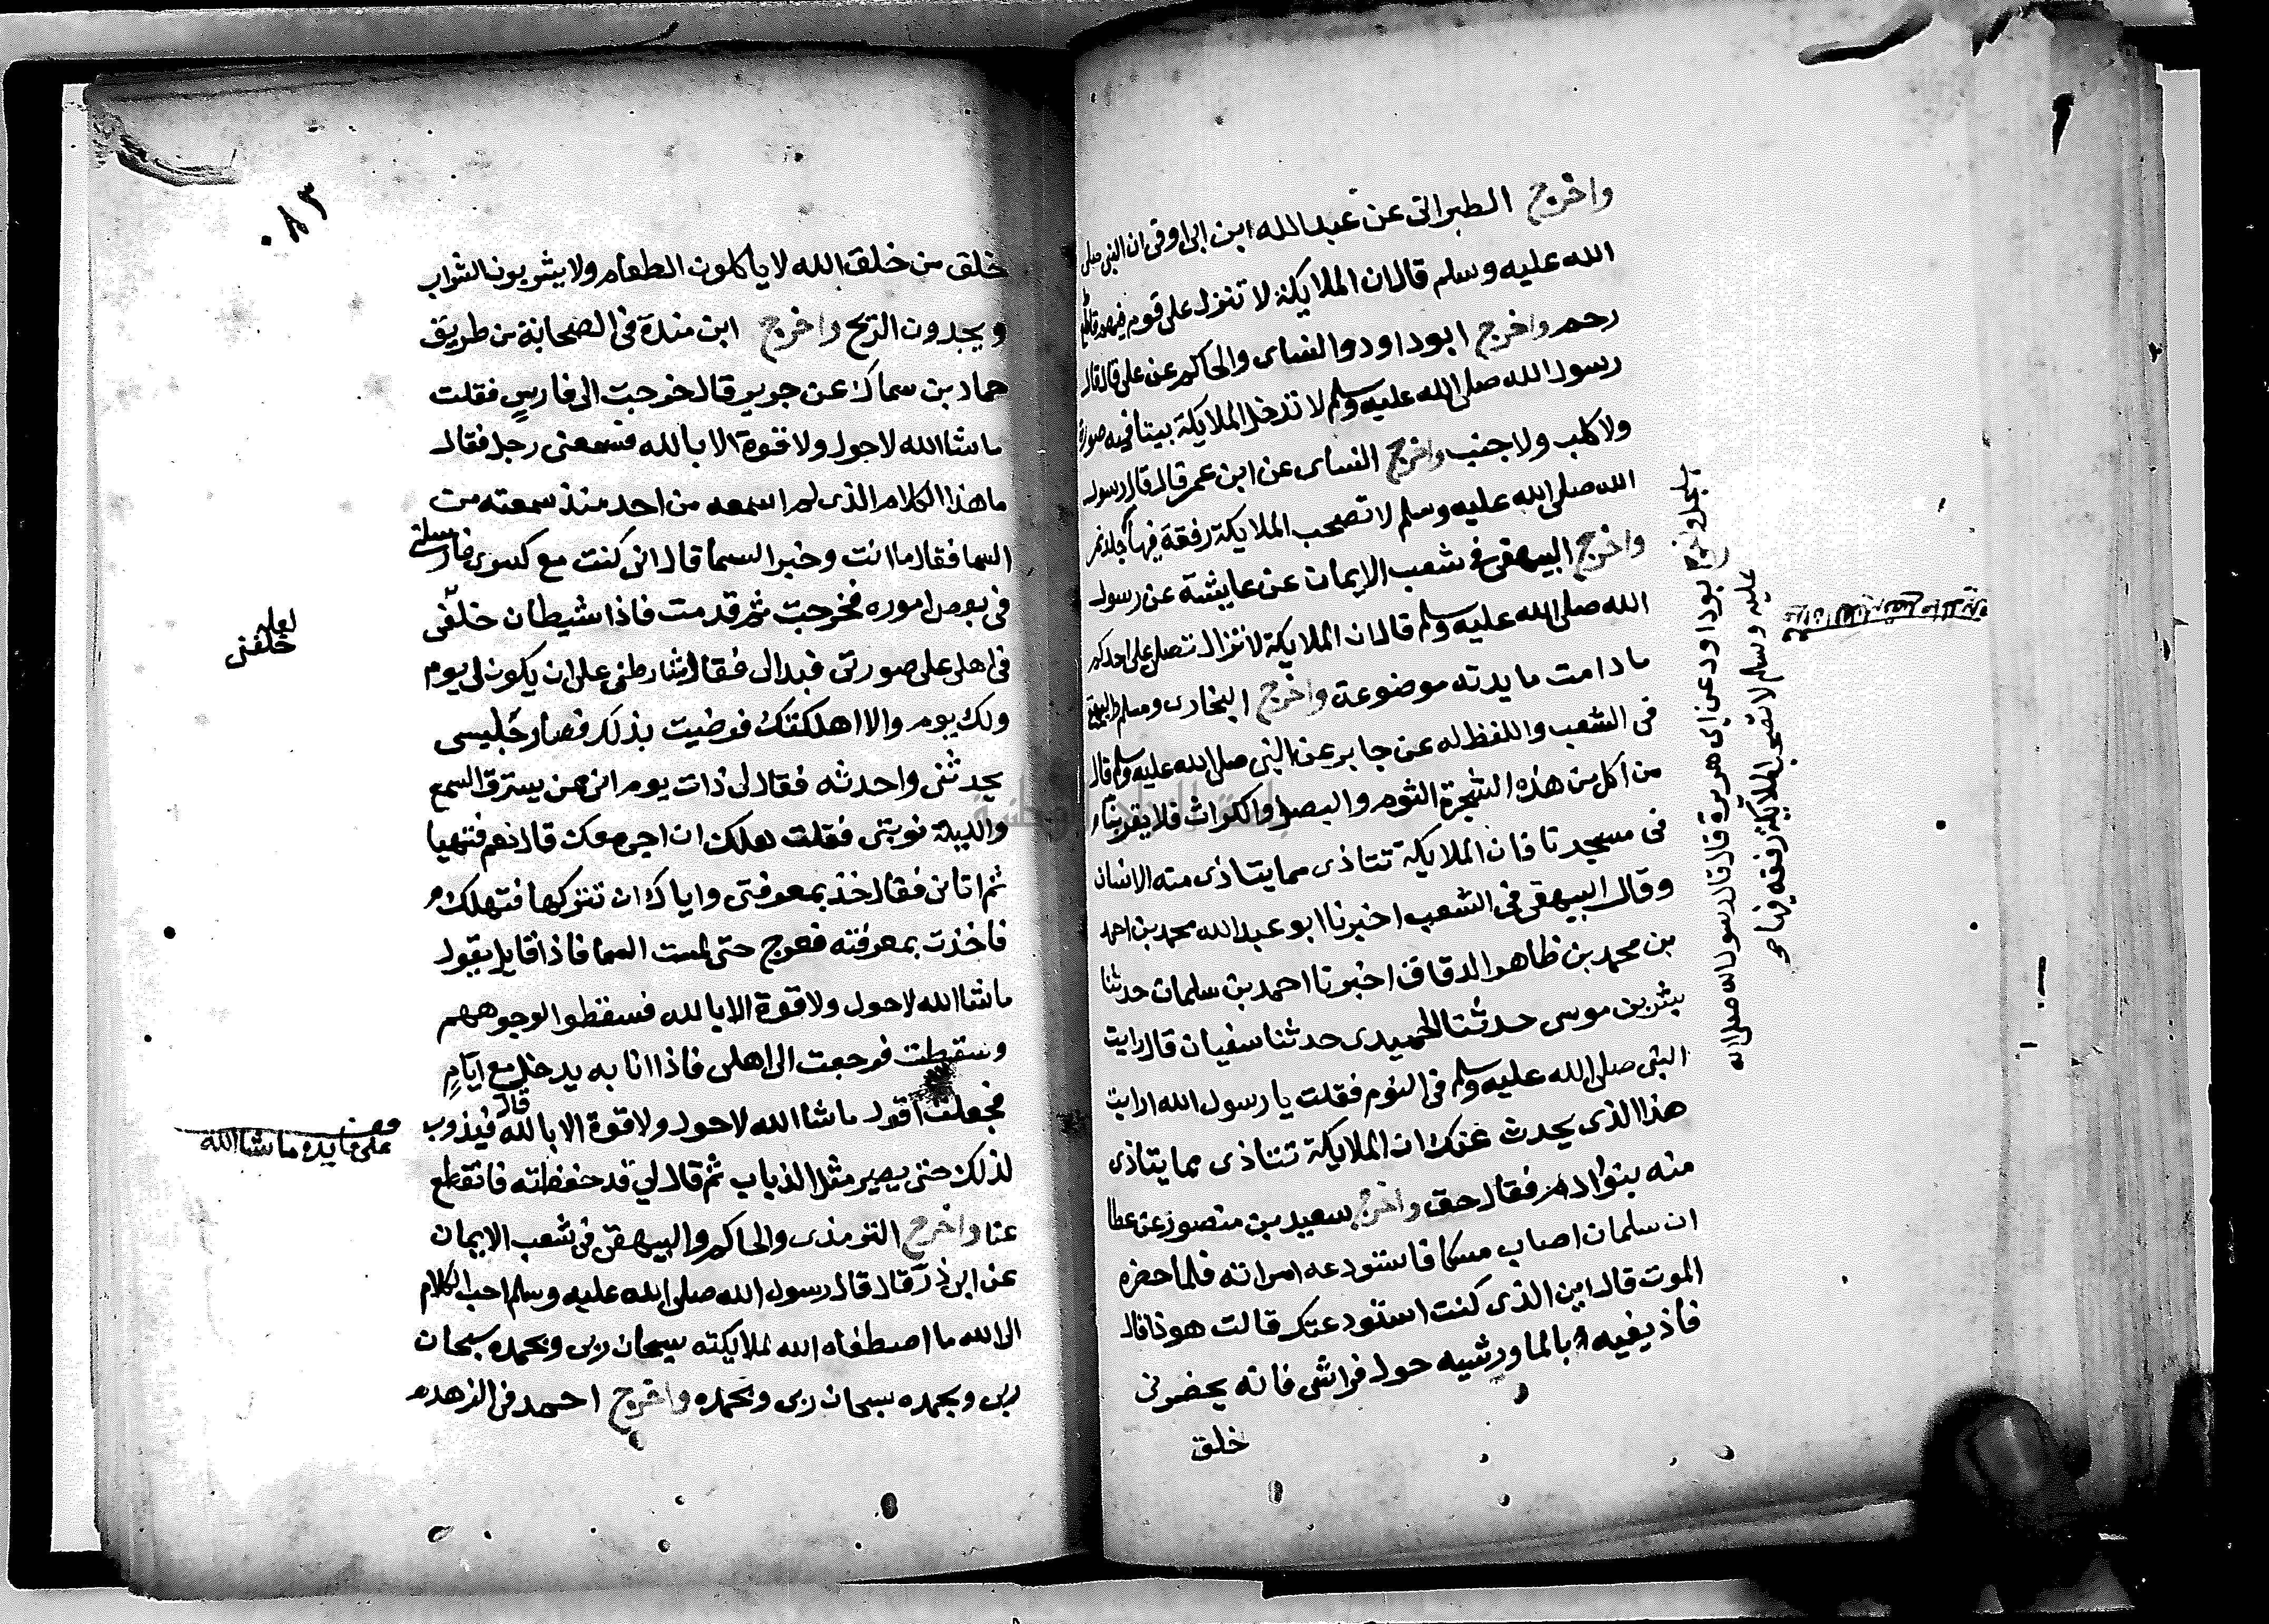 واخرج الطبراني عن عبد الله ابن ابي اوفى ان النبي صلى
الله عليه وسلم قال ان الملايكة لا تنزل على قوم فيهم قاطع
رحم واخرج ابو داود والنساى والحاكم عن على قال قال
رسول الله صلى الله عليه وسلم لا تدخل الملايكة بيتا فيه صورة
ولا كلب ولا جنب واخرج النساى عن ابن عمر قال قال رسول
الله صلى الله عليه وسلم لا تصحب الملايكة رفقة فيها جلد نمر
واخرج البيهقى فى شعب الايمان عن عايشة عن رسول
الله صلى الله عليه وسلم قال ان الملايكة لا تزال تصلى على احدكم
ما دامت مايدته موضوعة واخرج البخارى ومسلم
فى الشعب واللفظ له عن جابر عن النبى صلى الله عليه وسلم قال
من اكل من هذه الشجرة الثوم والبصل والكراث فلا يقربنا
فى مسجدنا فان الملايكة تتاذى مما يتاذى منه الانسان
وقال البيهقى فى الشعب اخبرنا ابو عبد الله محمد بن احمد
بن محمد بن طاهر الدقاق اخبرنا احمد بن سلمان حدثنا
بشر بن موسى حدثنا الحميدى حدثنا سفيان قال رايت
النبى صلى الله عليه وسلم فى النوم فقلت يا رسول الله ارايت
هذا الذى يحدث عنك ان الملايكة تتاذى مما يتاذى
منه بنوا ادم فقال حق واخرج سعيد بن منصور عن عطا
ان سلمان اصاب مسكا فاستودعه امراته فلما حضره
الموت قال اين الذى كنت استودعتك قالت هو ذا قال
فاذيفيه بالما ورشيه حول فراشى فانه يحضرنى
خلق
واخرج ابو داود عن ابى هريرة قال قال رسول الله صلى الله
عليه وسلم لا تصحب الملايكة رفقه فيها
٨٣
خلق من خلق الله لا ياكلون الطعام ولا يشربون الشراب
ويجدون الريح واخرج ابن مندة فى الصحابة من طريق
حماد بن سماك عن جرير قال خرجت الى فارس فقلت
ما شا الله لا حول ولا قوة الا بالله فسمعنى رجل فقال
ما هذا الكلام الذى لم اسمعه من احد منذ سمعته من
السما فقال ما انت وخبر السما قال انى كنت مع كسرى فارسلنى
فى بعض اموره فخرجت ثم قدمت فاذا شيطان خلفى
فى اهلى على صورتى فبدا لى فقال شارطنى على ان يكون لى يوم
ولك يوم والا اهلكتك فرضيت بذلك فصار جليسى
يحدثنى واحدثه فقال لى ذات يوم انى ممن يسترق السمع
والليلة نوبتى فقلت هل لك ان اجى معك قال نعم فتهيا
ثم اتانى فقال خذ بمعرفتى واياك ان تتركها فتهلك
فاخذت بمعرفته فعرج حتى لمست السما فاذا قايل يقول
ما شا الله لا حول ولا قوة الا بالله فسقطوا لوجوههم
وسقطت فرجعت الى اهلى فاذا انا به يدخل مع ايام
فجعلت اقول ما شا الله لا حول ولا قوة الا بالله قال فيذوب
لذلك حتى يصير مثل الذباب ثم قال لى قد حفظته فانقطع
عنا واخرج الترمذى والحاكم والبيهقى فى شعب الايمان
عن ابى ذر قال قال رسول الله صلى الله عليه وسلم احب الكلام
الى الله ما اصطفاه الله لملايكته سبحان ربى وبحمده سبحان
ربى وبحمده سبحان ربى وبحمده واخرج احمد فى الزهد
لعله
خلفنى
قف
على فايده ما شا الله